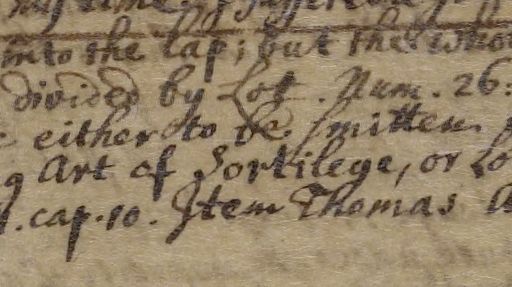 into the lap; but the whol
divided by Lot. Num. 26:
either to be smitten
g Art of Sortilege, or Lo
. cap. 10. Item Thomas A